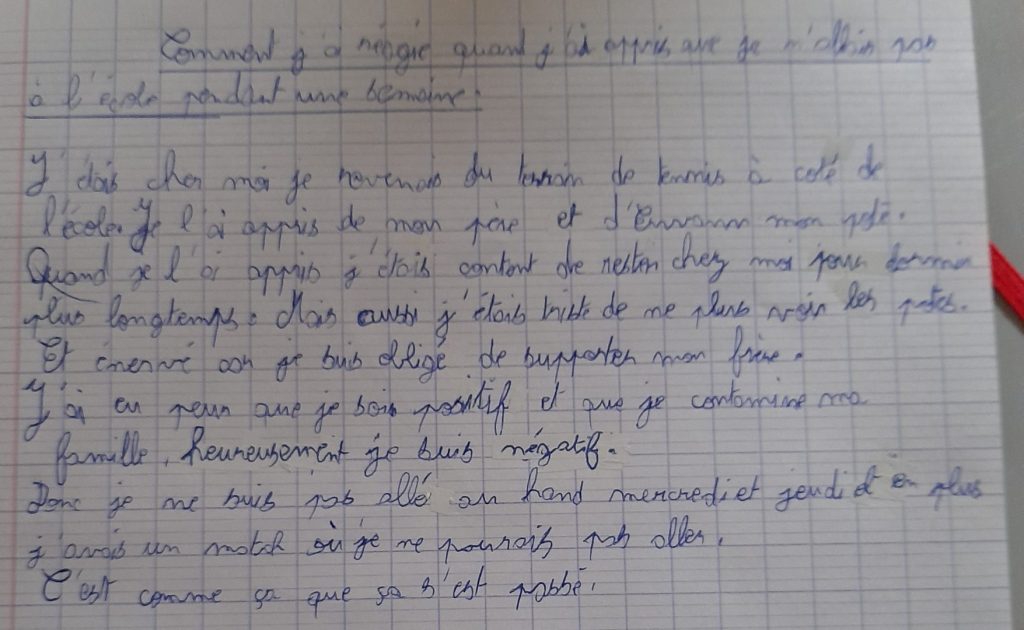 Comment j'ai réagie quand j'ai appris que je n'allais pas
à l'école pendant une semaine.
J'étais chez moi je revenais du terrain de tennis à coté de
l'école. Je l'ai appris de mon père et d'Erwann mon pote.
Quand je l'ai appris j'étais content de rester chez moi pour dormir
plus longtemps. Mais aussi j'étais triste de ne plus voir les potes.
Et énervé car je suis obligé de supporter mon frère.
J'ai eu peur que je sois positif et que je contamine ma
famille, heureusement je suis négatif.
Donc je me suis pas allé au hand mercredi et jeudi et en plus
j'avais un match où je ne pourrais pas aller.
C'est comme ça que ça s'est passé.